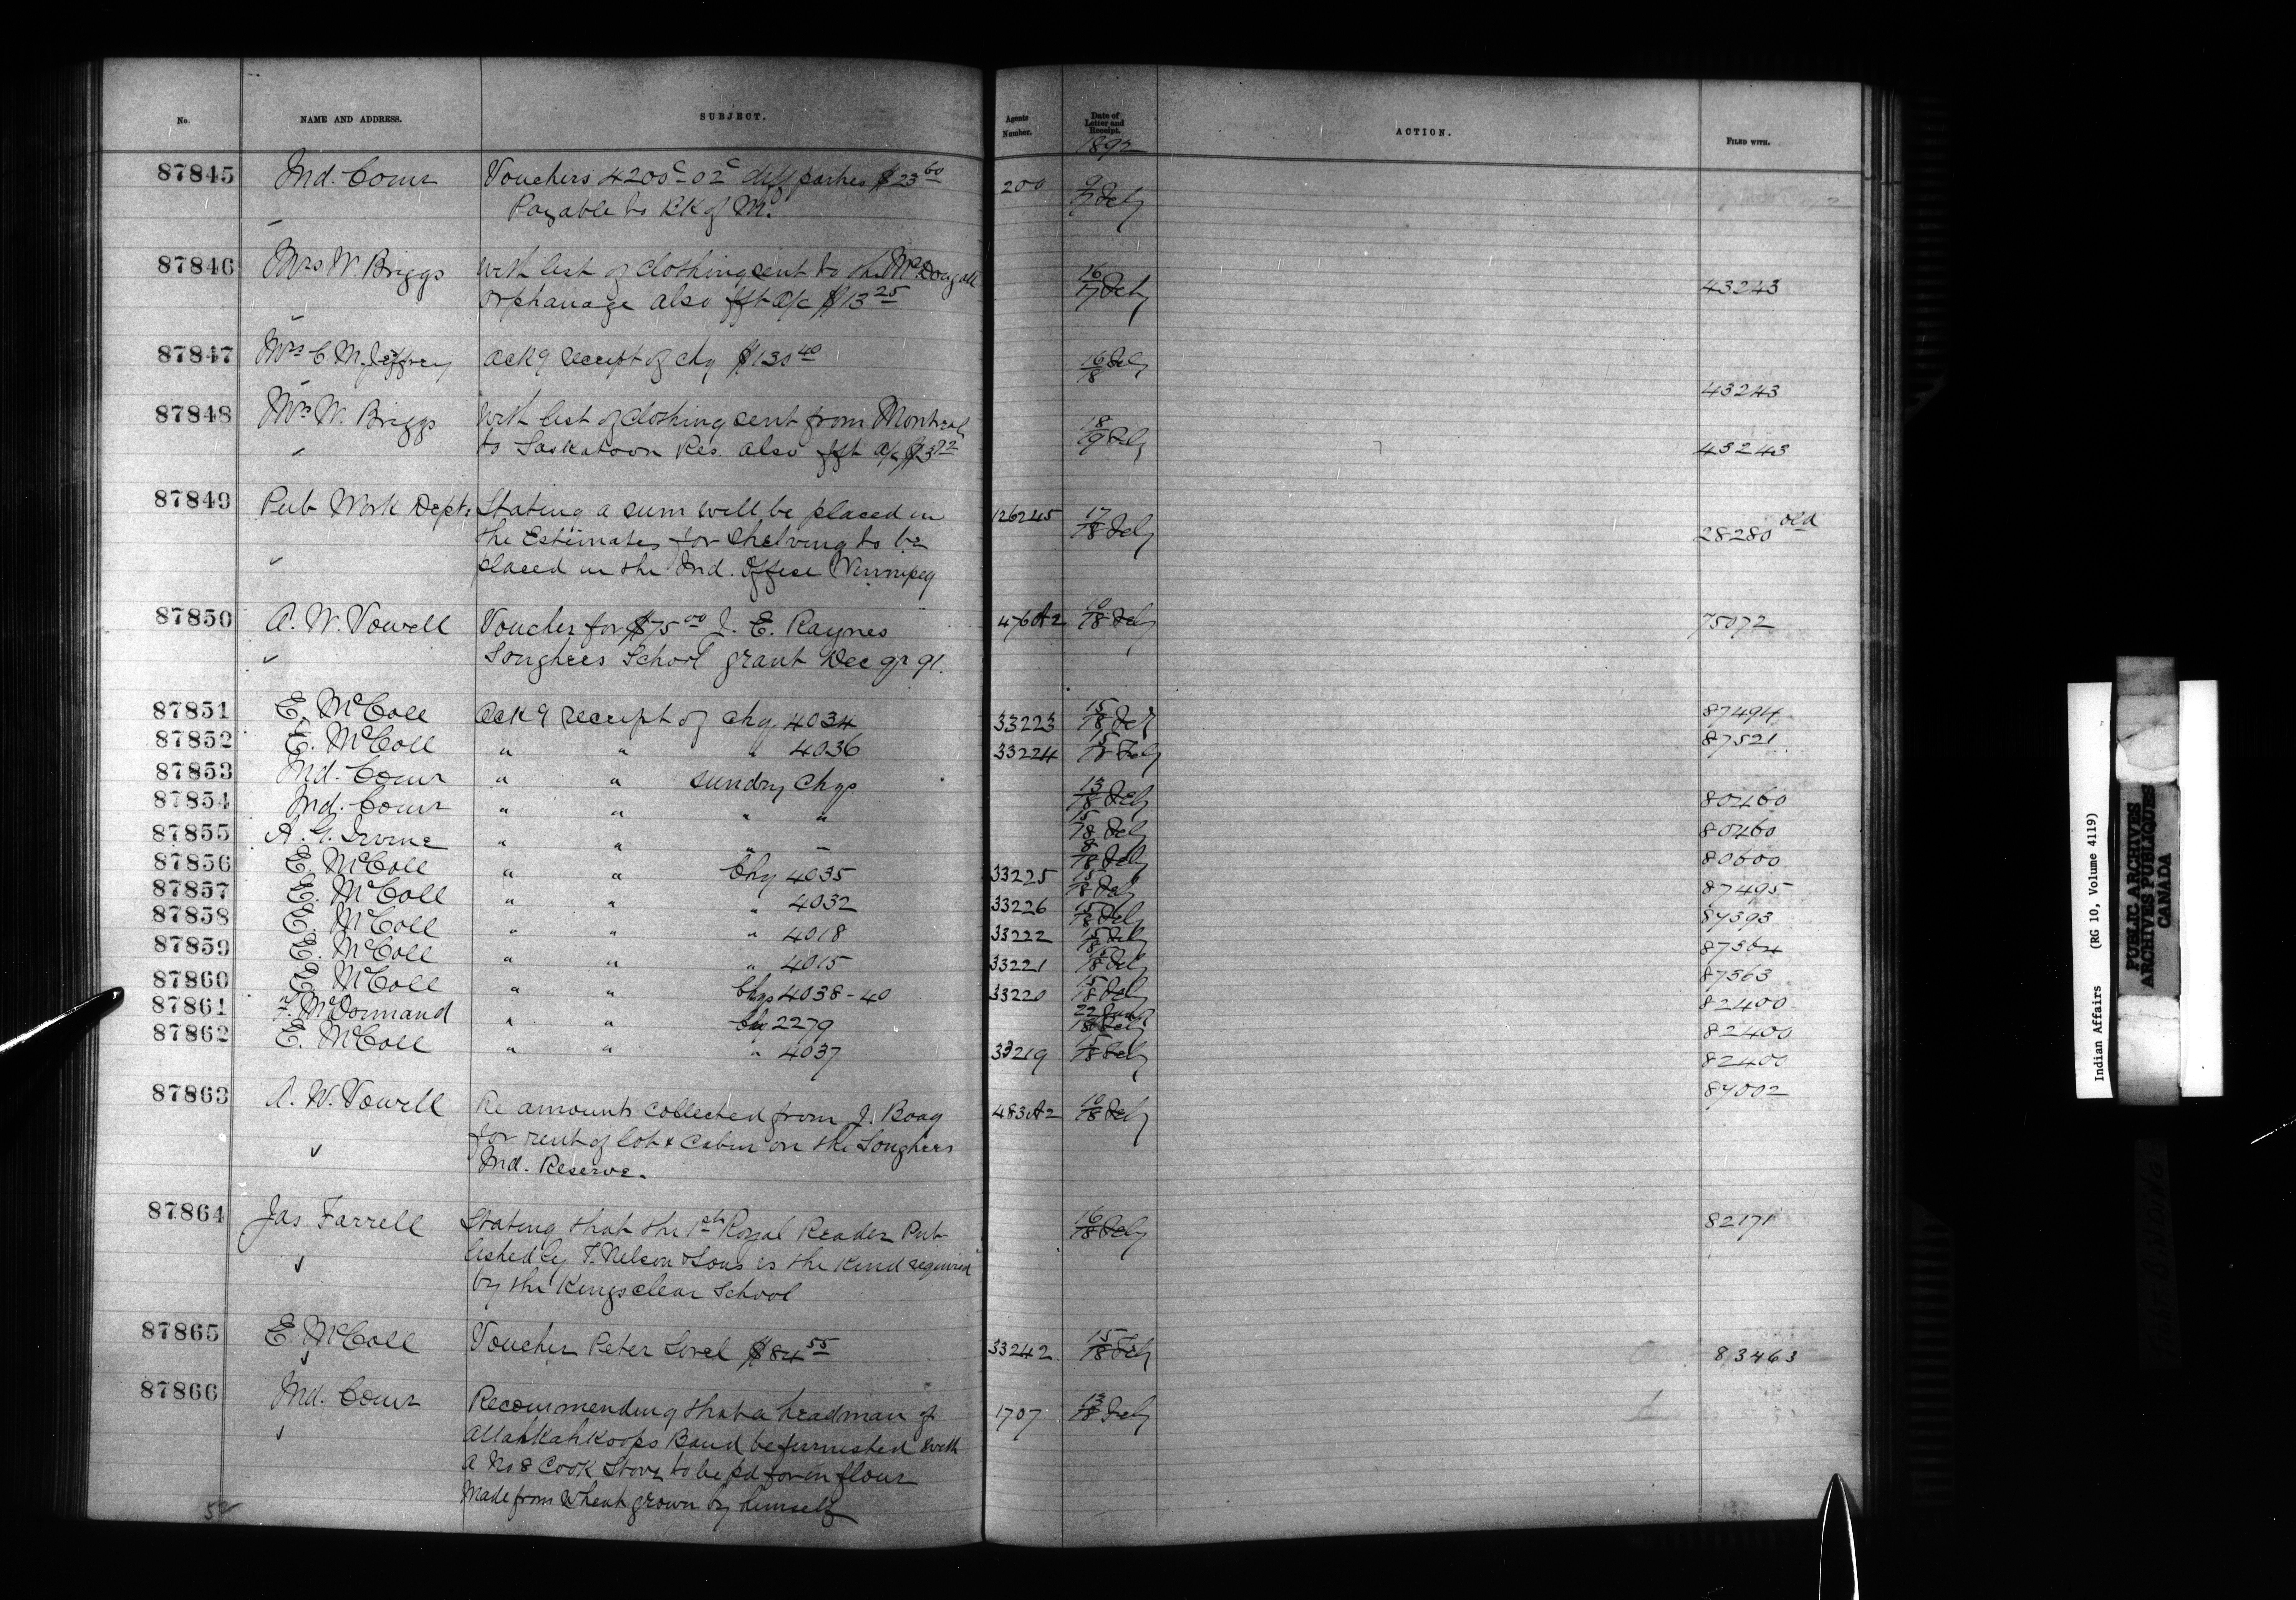 No. NAME AND ADDRESS. SUBJECT. Agents Number. Date of Letter and Receipt. ACTION. FILED WITH.
1892
87845 Ind. Comr Vouchers 4200c-02c diff parties $23 60 200 9/17 Feby
Payable to
87846 Mrs W. Briggs with list of clothing sent to the McDougall 16/17 Feby 43243
Orphanage also frt a/c $13 25
87847 Mrs C. M. Jeffrey Ackg receipt of chq $130 40 16/18 Feby 43243
87848 Mrs W. Briggs With list of clothing sent from Montreal 18/19 Feby 43243
to Saskatoon Res. also frt a/c
87849 Pub Work Dept. Stating a sum will be placed in 126245 17/18 Feby 28280 old
the Estimates for Shelving to be
placed in the Ind. Office Winnipeg
87850 A. W. Vowell Voucher for $75 00 J. E. Raynes 476A2 10/18 Feby 75072
Songhees School grant Dec qr 91.
87851 E. McColl Ackg receipt of chq 4034 33223 15/18 Feby 87494
87852 E. McColl " " " 4036 33224 15/18 Feby 87521
87853 Ind. Comr " " sundry Chqs 13/18 Feby 80460
87854 Ind. Comr " " " " 15/18 Feby 80460
87855 A. G. Irvine " " " " 8/18 Feby 80600
87856 E. McColl " " Chq 4035 33225 15/18 Feby 87495
87857 E. McColl " " " 4032 33226 15/18 Feby 87393
87858 E. McColl " " " 4018 33222 15/18 Feby 87364
87859 E. McColl " " " 4015 33221 15/18 Feby 87363
87860 E. McColl " " Chqs 4038-40 33220 15/18 Feby 82400
87861 F. McDormand " " chq 2279 22 Jany/18 Feby 82400
87862 E. McColl " " " 4037 33219 15/18 Feby 82400
87863 A. W. Vowell Re amounts collected from J. Boag 483A2 10/18 Feby 87002
for rent of lot & Cabin on the Songhees
Ind. Reserve.
87864 Jas Farrell Stating that the 1st Royal Reader Pub 16/18 Feby 82171
lished by T. Nelson & Sons is the kind required
by the Kingsclear School
87865 E. McColl Voucher Peter Sorel $84 55 33242 15/18 Feby 83463
87866 Ind. Comr Recommending that a headman of 1707 13/18 Feby
Attahkahkoops Band be furnished with
a No 8 Cook Stove to be pd for in flour
Made from Wheat grown by himself
Indian Affairs (RG 10, Volume 4119)
PUBLIC ARCHIVES
ARCHIVES PUBLIQUES
CANADA